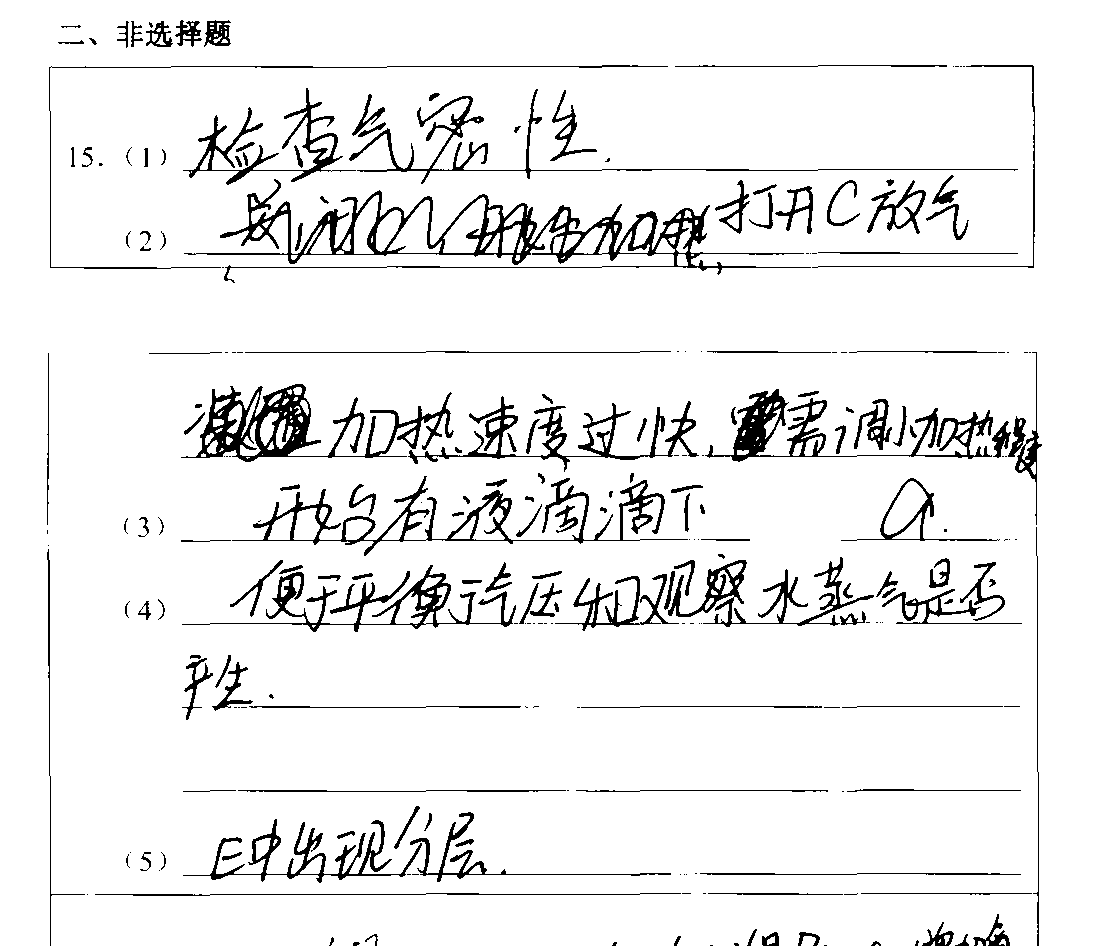 二、非选择题
15.（1）检查气密性.
（2）打开C放气
加热速度过快，需调小加热程度
（3）开始有液滴滴下 a.
（4）便于平衡气压和观察水蒸气是否
产生.
（5）E中出现分层.